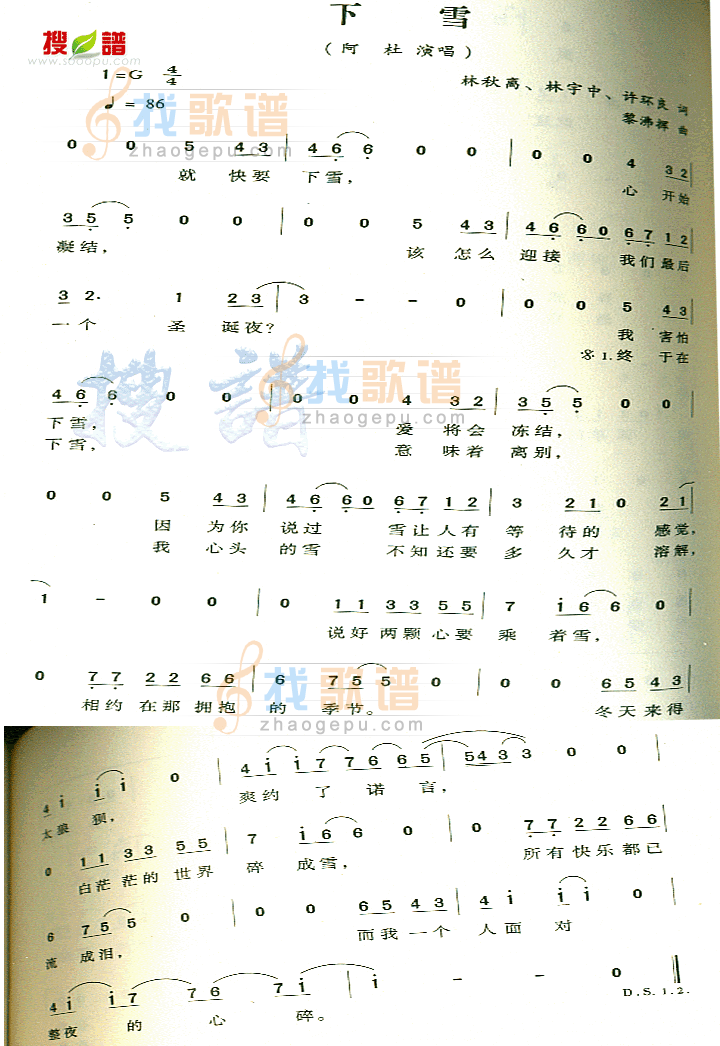 下 雪
搜 譜
www.sooopu.com
(阿 杜 演唱)
1=G 4/4
林秋离、林宇中、许环良 词
♩= 86
黎沸挥 曲
找歌谱
zhaogepu.com
0 0 5 4 3 | 4 6 6 0 0 | 0 0 4 3 2
就 快要 下雪, 心 开始
3 5 5 0 0 | 0 0 5 4 3 | 4 6 6 0 6 7 1 2
凝结, 该 怎么 迎接 我们最后
3 2· 1 2 3 | 3 - - 0 | 0 0 5 4 3
一个 圣 诞夜? 我 害怕
1.终 于在
搜 譜
找歌谱
zhaogepu.com
4 6 6 0 0 | 0 0 4 3 2 | 3 5 5 0 0
下雪, 爱 将会 冻结,
下雪, 意 味着 离别,
0 0 5 4 3 | 4 6 6 0 6 7 1 2 | 3 2 1 0 2 1
因 为你 说过 雪让人有 等 待的 感觉,
我 心头 的雪 不知还要 多 久才 溶解,
1 - 0 0 | 0 1 1 3 3 5 5 | 7 i 6 6 0
说好 两颗 心要 乘 着雪,
0 7 7 2 2 6 6 | 6 7 5 5 0 | 0 0 6 5 4 3
相约 在那 拥抱 的 季节。 冬天来得
找歌谱
zhaogepu.com
4 i i i 0 | 4 i i 7 7 6 6 5 | 5 4 3 3 0 0
太狼狈, 爽约 了 诺 言,
0 1 1 3 3 5 5 | 7 i 6 6 0 | 0 7 7 2 2 6 6
白茫 茫的 世界 碎 成雪, 所有 快乐 都已
6 7 5 5 0 | 0 0 6 5 4 3 | 4 i i i 0
流 成泪, 而我一个 人面 对
4 i i 7 7 6 6 7 i | i - - 0
整夜 的 心 碎。
D.S.1.2.